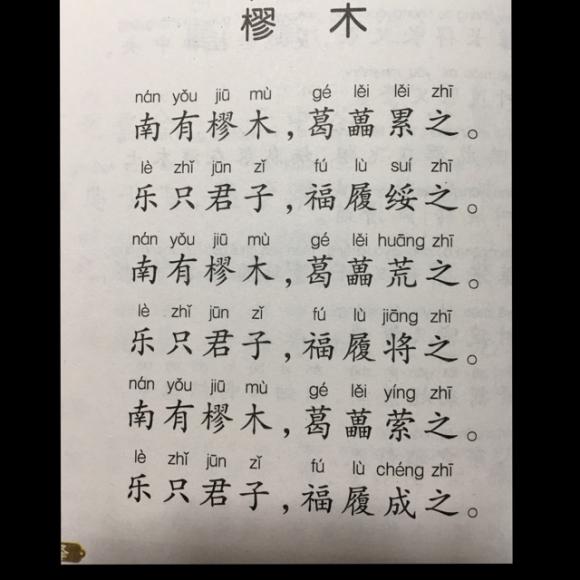 樛 木
nán yǒu jiū mù gé lěi lěi zhī
南有樛木,葛藟累之。
lè zhǐ jūn zǐ fú lù suí zhī
乐只君子,福履绥之。
nán yǒu jiū mù gé lěi huāng zhī
南有樛木,葛藟荒之。
lè zhǐ jūn zǐ fú lù jiāng zhī
乐只君子,福履将之。
nán yǒu jiū mù gé lěi yíng zhī
南有樛木,葛藟萦之。
lè zhǐ jūn zǐ fú lù chéng zhī
乐只君子,福履成之。